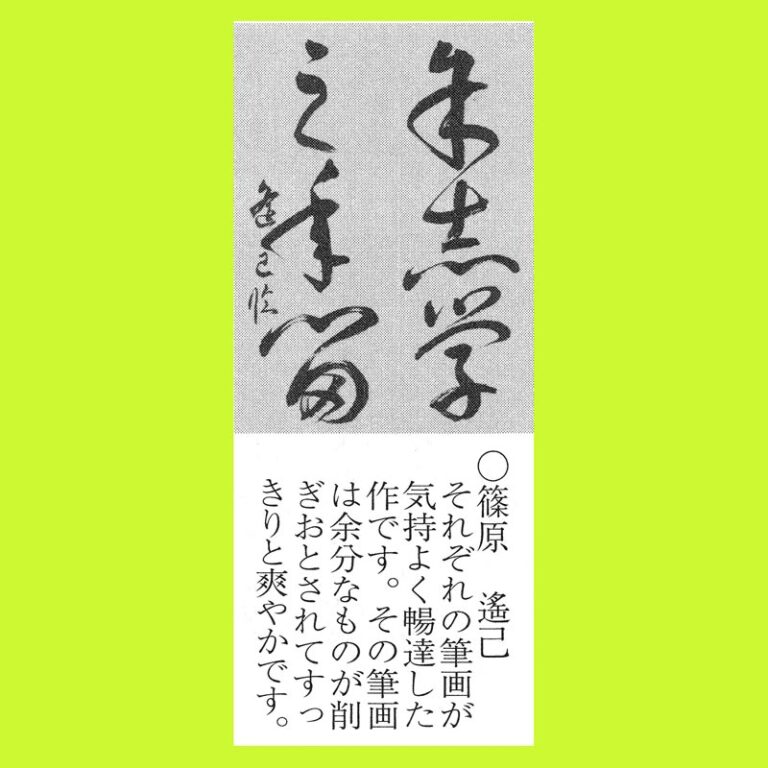 余志学
之年留
遙己臨
○篠原 遙己
それぞれの筆画が
気持よく暢達した
作です。その筆画
は余分なものが削
ぎおとされてすっ
きりと爽やかです。